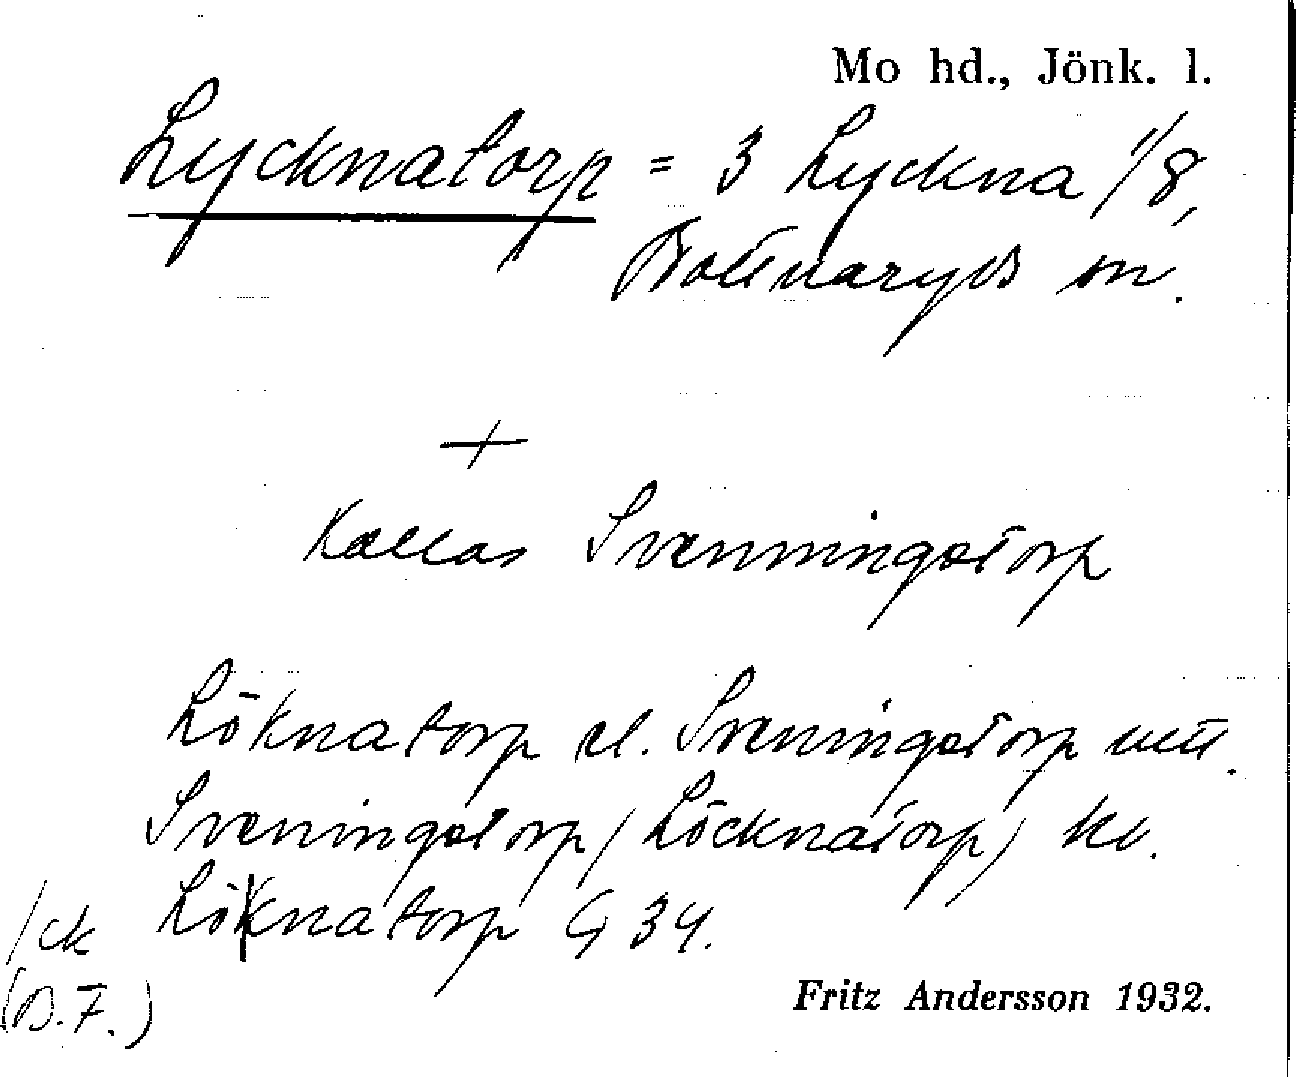 Mo hd., Jönk. l.
Lycknatorp = 3 Lyckna 1/8,
Bottnaryds sn.
+
Kallas Svenningstorp
Löknatorp el. Sveningstorp
Sveningstorp (Löcknatorp)
/ck Löknatorp G 34.
(B.F.)
Fritz Andersson 1932.